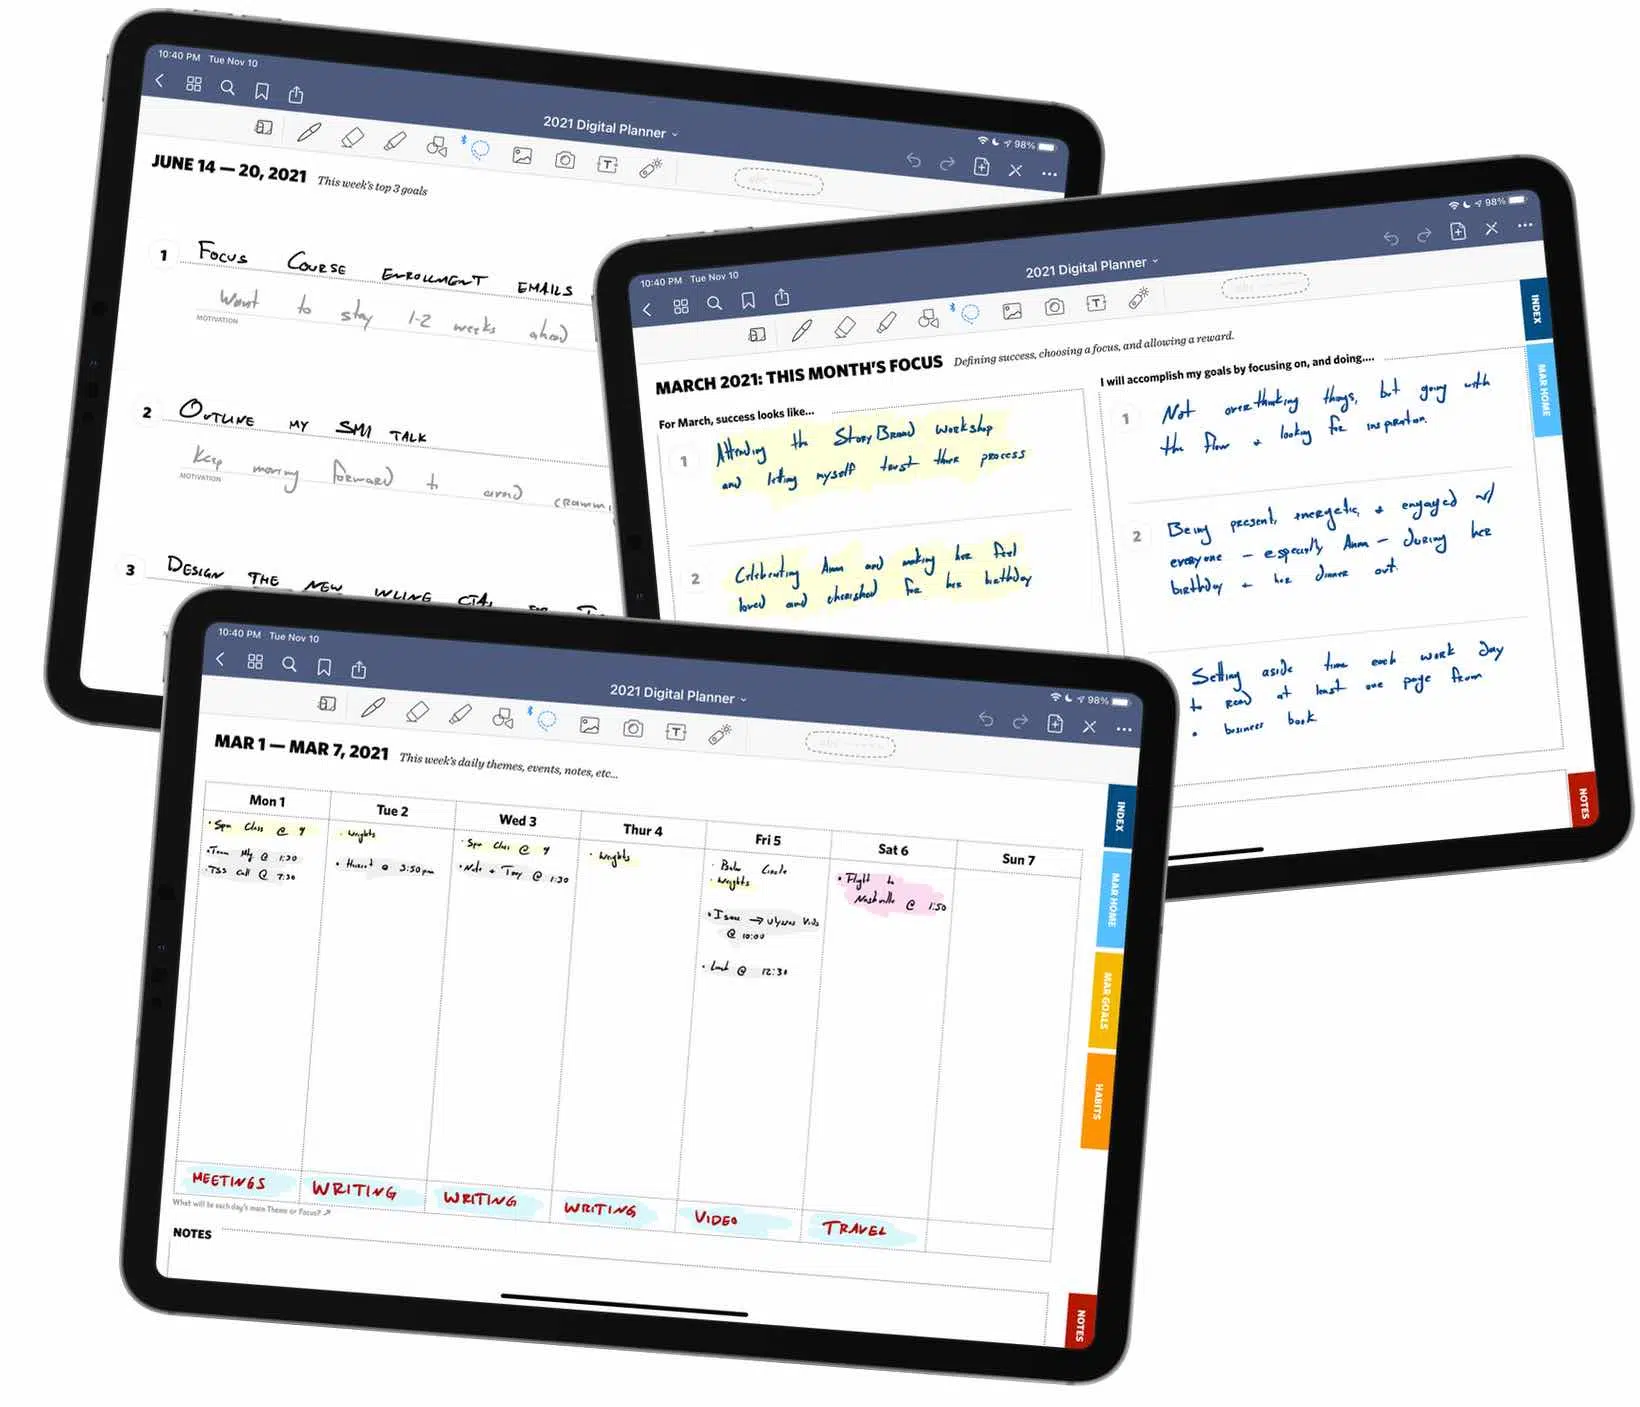 10:40 PM Tue Nov 10
2021 Digital Planner
98%
JUNE 14 — 20, 2021 This week's top 3 goals
1 FOCUS COURSE ENROLLMENT EMAILS
Want to stay 1-2 weeks ahead
MOTIVATION
2 OUTLINE MY SMI TALK
Keep moving forward to avoid crammi
MOTIVATION
3 DESIGN THE NEW WLINE CTA FOR
10:40 PM Tue Nov 10
2021 Digital Planner
98%
MARCH 2021: THIS MONTH'S FOCUS Defining success, choosing a focus, and allowing a reward.
For March, success looks like...
1 Attending the StoryBrand workshop
and letting myself trust their process
2 Celebrating Anna and making her feel
loved and cherished for her birthday
I will accomplish my goals by focusing on, and doing....
1 Not overthinking things, but going with
the flow + looking for inspiration.
2 Being present, energetic, + engaged w/
everyone – especially Anna – during her
birthday + her dinner out.
Setting aside time each work day
to read at least one page from
a business book
INDEX
MAR HOME
NOTES
10:40 PM Tue Nov 10
2021 Digital Planner
98%
MAR 1 — MAR 7, 2021 This week's daily themes, events, notes, etc...
Mon 1
• Spin Class @ 9
• Team Mtg @ 1:30
• TSS Call @ 7:30
Tue 2
• Weights
• Haircut @ 3:50pm
Wed 3
• Spin Class @ 9
• Nate + Troy @ 1:30
Thur 4
• Weights
Fri 5
• Circle
• Weights
• Isaac → Ulysses Vids
@ 10:00
• Lunch @ 12:30
Sat 6
• Flight to
Nashville @ 1:50
Sun 7
MEETINGS
WRITING
WRITING
WRITING
VIDEO
TRAVEL
What will be each day's main Theme or Focus?
NOTES
INDEX
MAR HOME
MAR GOALS
HABITS
NOTES